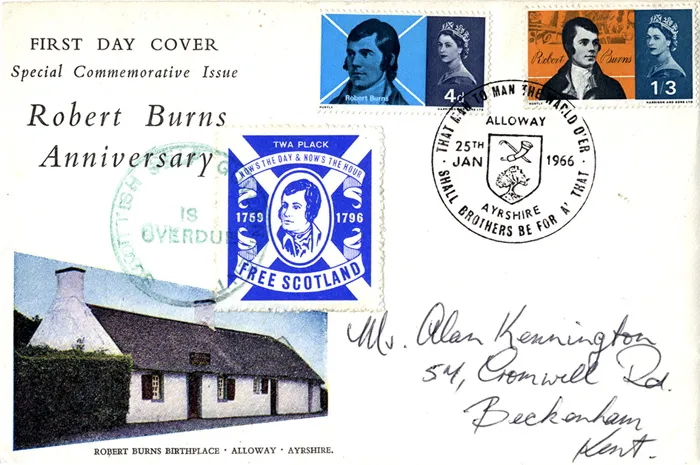 FIRST DAY COVER
Special Commemorative Issue
Robert Burns
Anniversary
Robert Burns
4d
HARRISON AND SONS LTD
Robert Burns
1/3
HARRISON AND SONS LTD
THAT MAN TO MAN THE WARLD O'ER
ALLOWAY
25TH
JAN
1966
AYRSHIRE
SHALL BROTHERS BE FOR A' THAT
TWA PLACK
NOW'S THE DAY & NOW'S THE HOUR
1759
1796
FREE SCOTLAND
SCOTTISH
IS
OVERDUE
Mr. Alan Kennington
54, Cromwell Rd.
Beckenham
Kent.
ROBERT BURNS BIRTHPLACE · ALLOWAY · AYRSHIRE.